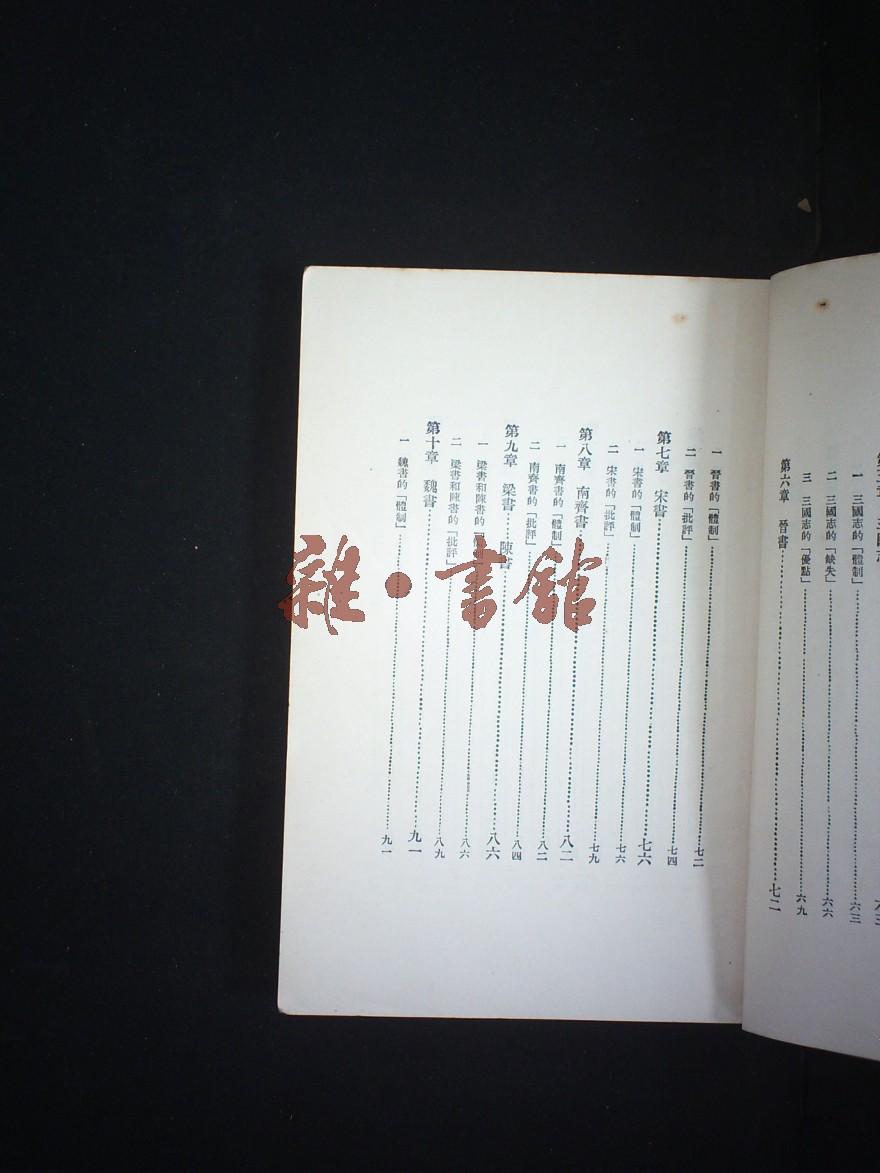 一 三國志的「體制」……六三
二 三國志的「缺失」……六六
三 三國志的「優點」……六九
第六章 晉書……七二
一 晉書的「體制」……七二
二 晉書的「批評」……七四
第七章 宋書……七六
一 宋書的「體制」……七六
二 宋書的「批評」……七九
第八章 南齊書……八二
一 南齊書的「體制」……八二
二 南齊書的「批評」……八四
第九章 梁書……陳書……八六
一 梁書和陳書的「……八六
二 梁書和陳書的「批評」……八九
第十章 魏書……九一
一 魏書的「體制」……九一
雜·書館